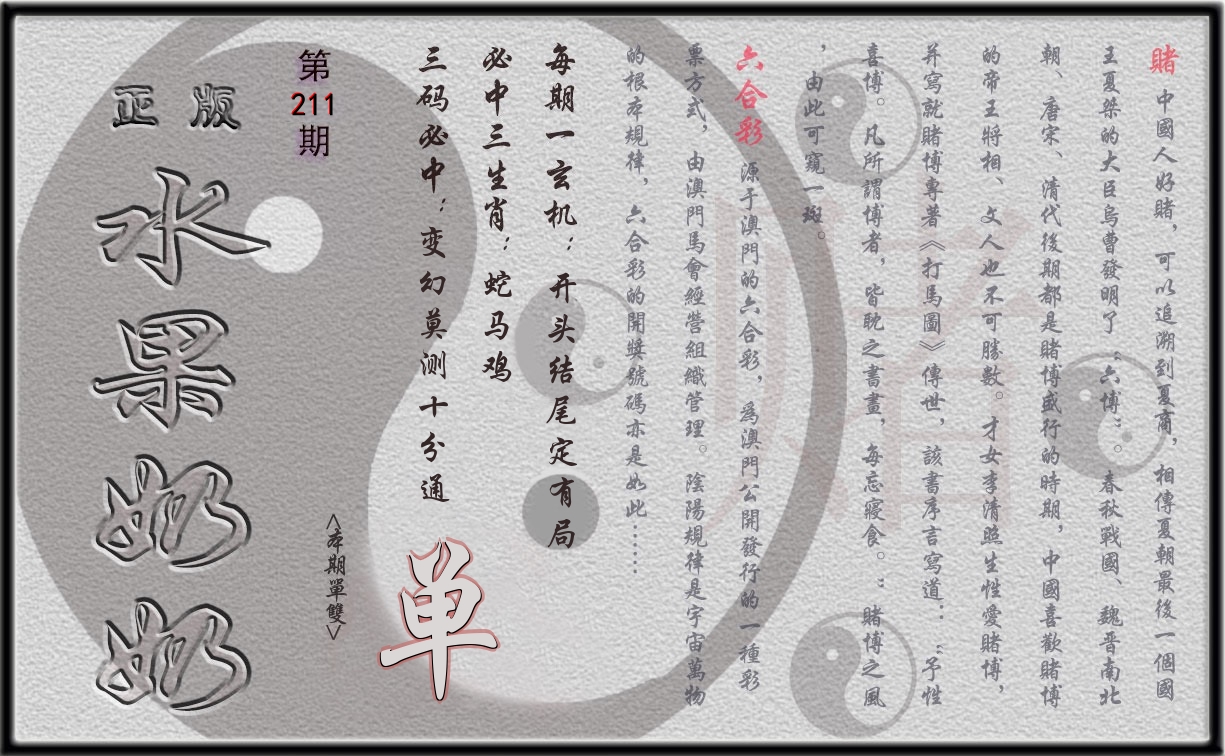 賭 中國人好賭，可以追溯到夏商，相傳夏朝最後一個國
王夏桀的大臣烏曹發明了“六博”。春秋戰國、魏晋南北
朝、唐宋、清代後期都是賭博盛行的時期，中國喜歡賭博
的帝王將相、文人也不可勝數。才女李清照生性愛賭博，
并寫就賭博專著《打馬圖》傳世，該書序言寫道：“予性
喜博。凡所謂博者，皆耽之晝畫，每忘寢食。：賭博之風
，由此可窺一斑。
六合彩 源于澳門的六合彩，爲澳門公開發行的一種彩
票方式，由澳門馬會經營組織管理。陰陽規律是宇宙萬物
的根本規律，六合彩的開獎號碼亦是如此……
每期一玄机：开头结尾定有局
必中三生肖：蛇马鸡
三码必中：变幻莫测十分通
<本期單雙>
单
第
211
期
正版
水果奶奶
賭